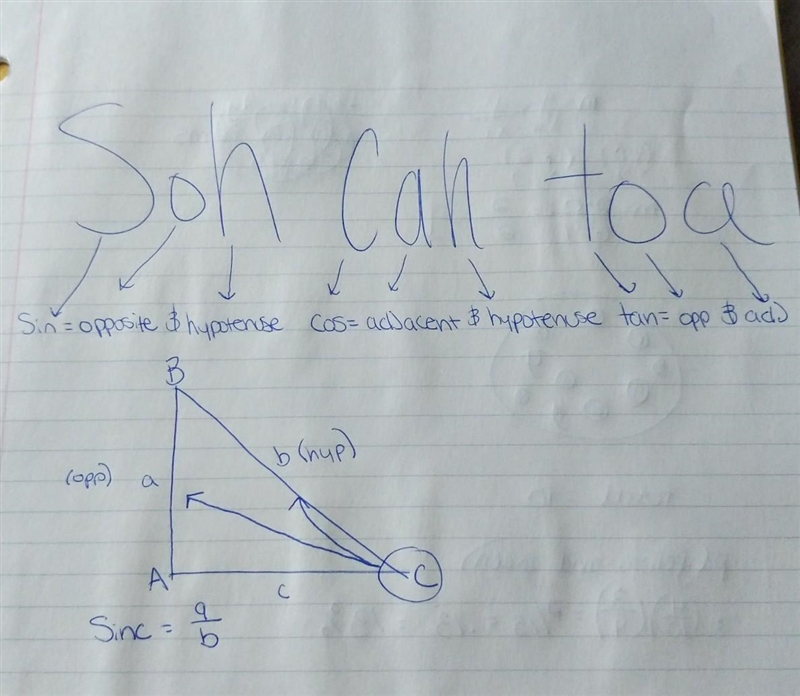 Soh Cah toa
Sin = opposite & hypotenuse cos = adjacent & hypotenuse tan = opp & adj
B
b (hyp)
(opp) a
A C
c
Sinc = a/b